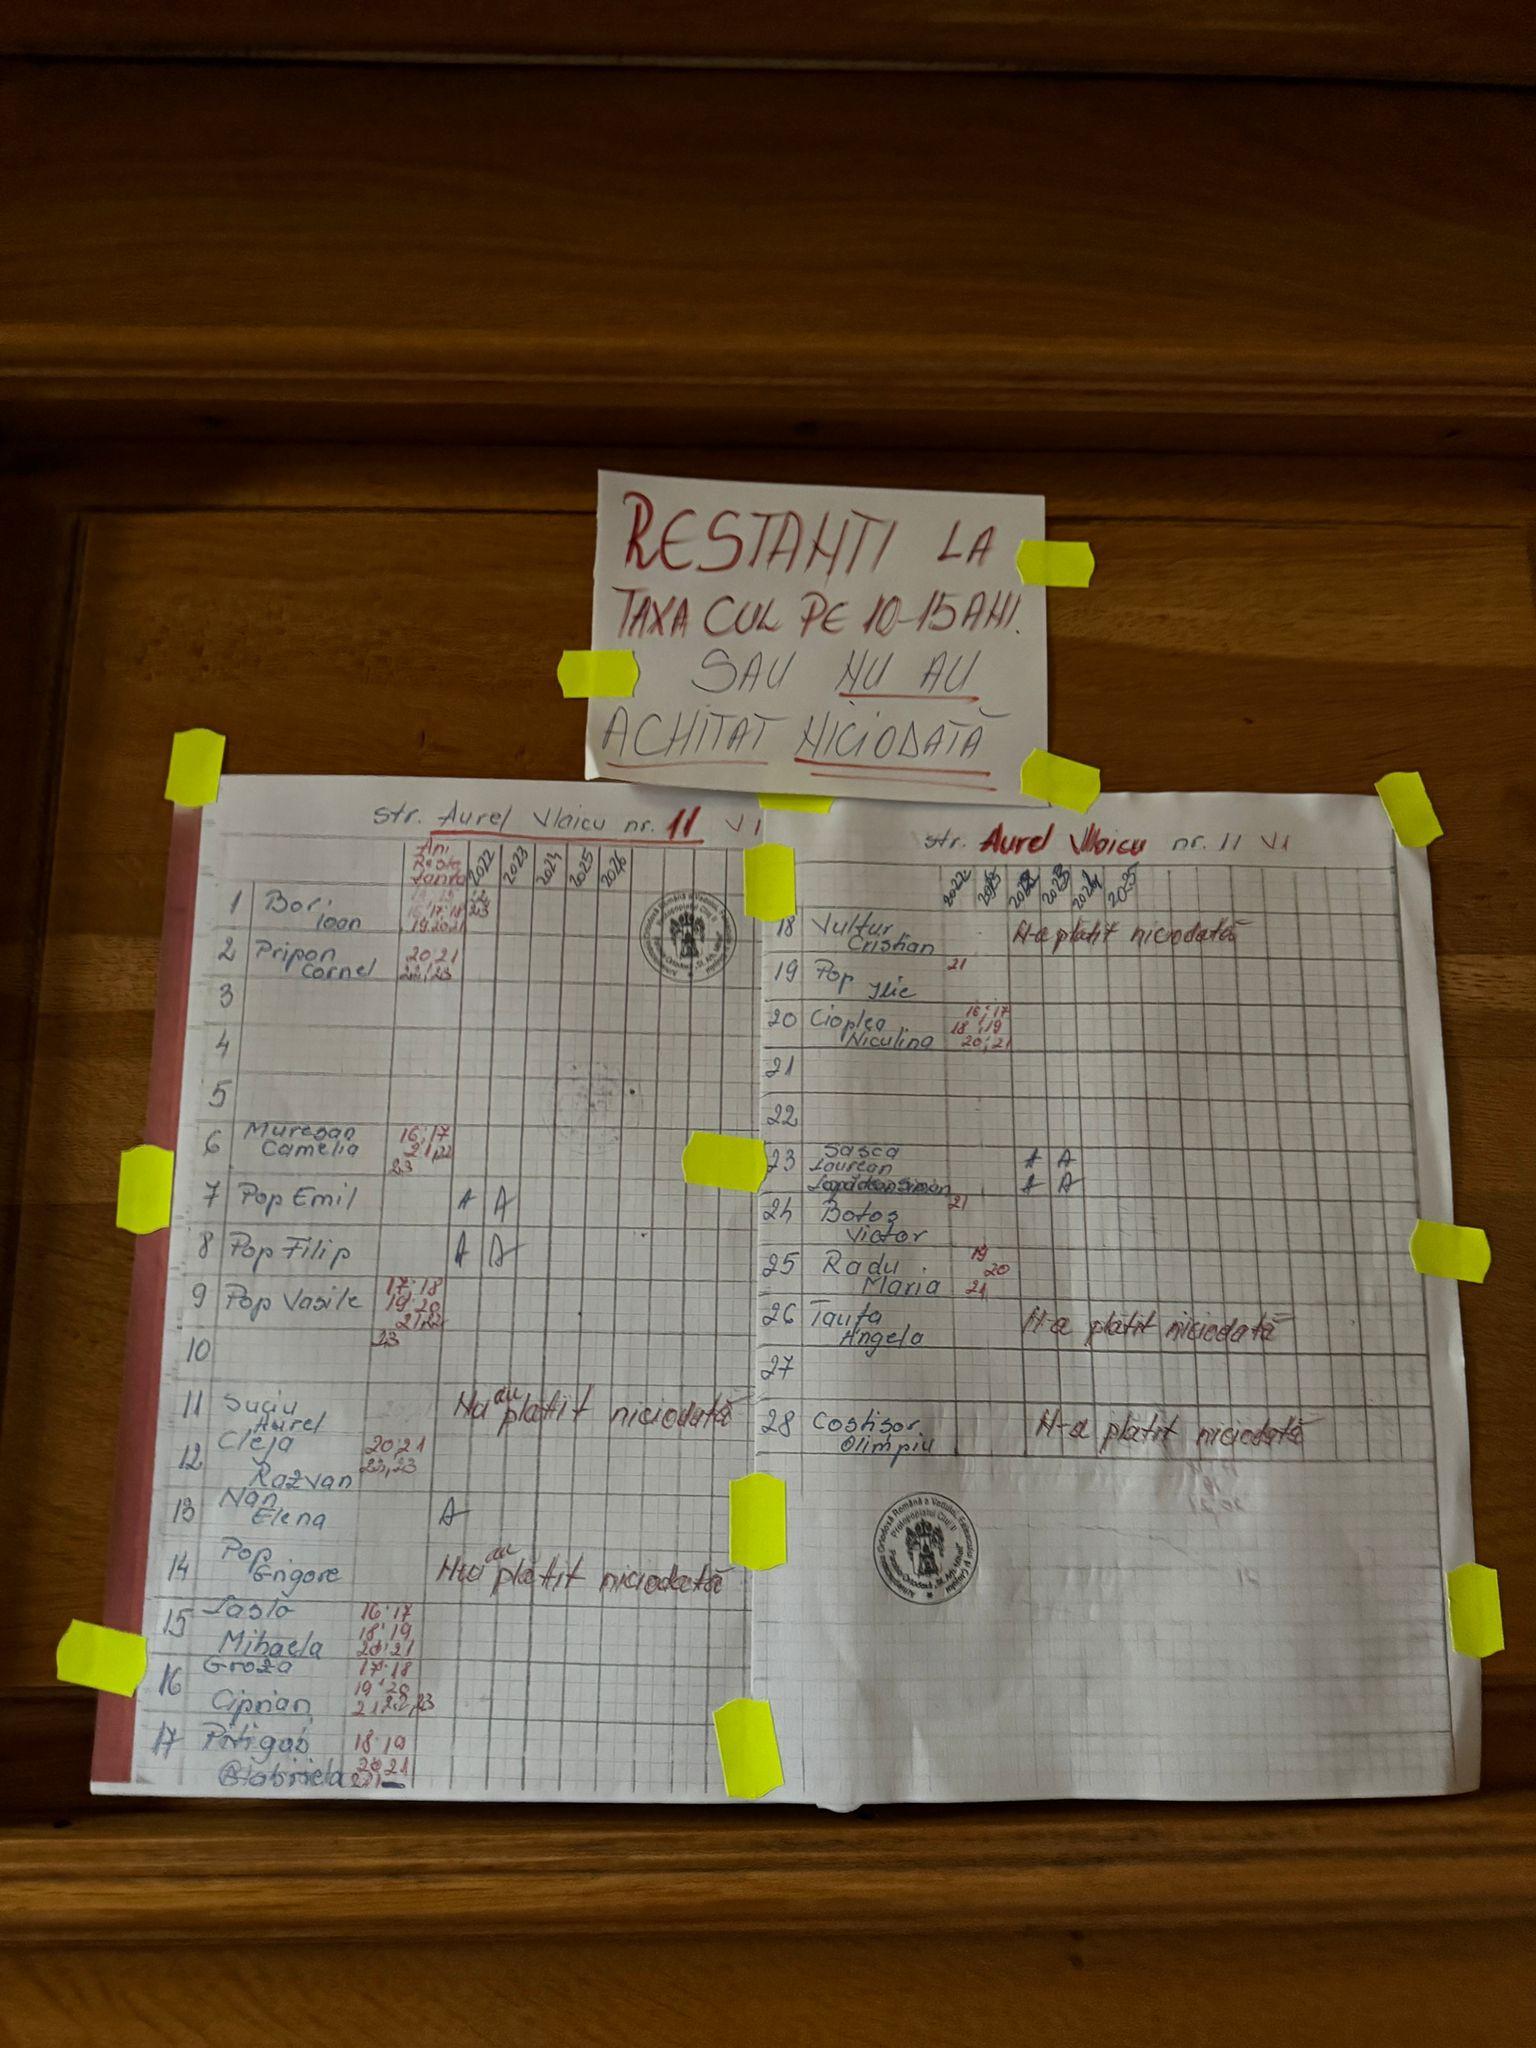 RESTANTI LA
TAXA CUL PE 10-15 ANI.
SAU NU AU
ACHITAT NICIODATĂ
str. Aurel Vlaicu nr. 11 VI
Ani
2022 2023 2024 2025 2026
1 Bori
Ioan 19,20,21
2 Pripon 20,21
Cornel 22,23
3
4
5
6 Muresan 16,17
Camelia 21,22
23
7 Pop Emil A A
8 Pop Filip A A
9 Pop Vasile 17,18
19,20
21,22
23
10
11 Suciu
Aurel
Nu au platit niciodată
12 Cleja 20,21
Razvan 22,23
13 Nan
Elena A
14 Pop
Grigore
Nu au platit niciodată
15 Laslo 16,17
18,19
Mihaela 20,21
16 Groza 17,18
19,20
Ciprian 21,22,23
17 18,19
20,21
str. Aurel Vlaicu nr. 11 VI
2022 2023 2024 2025
18 Vultur
Cristian
N-a platit niciodată
19 Pop 21
Ilie
20 Cioplea 16,17
18,19
Niculina 20,21
21
22
23 Sasca
Laurean A A
A A
24 Botos 21
Victor
25 Radu 19
20
Maria 21
26 Tauta
Angela
N-a platit niciodată
27
28 Costisor
Olimpiu
N-a platit niciodată